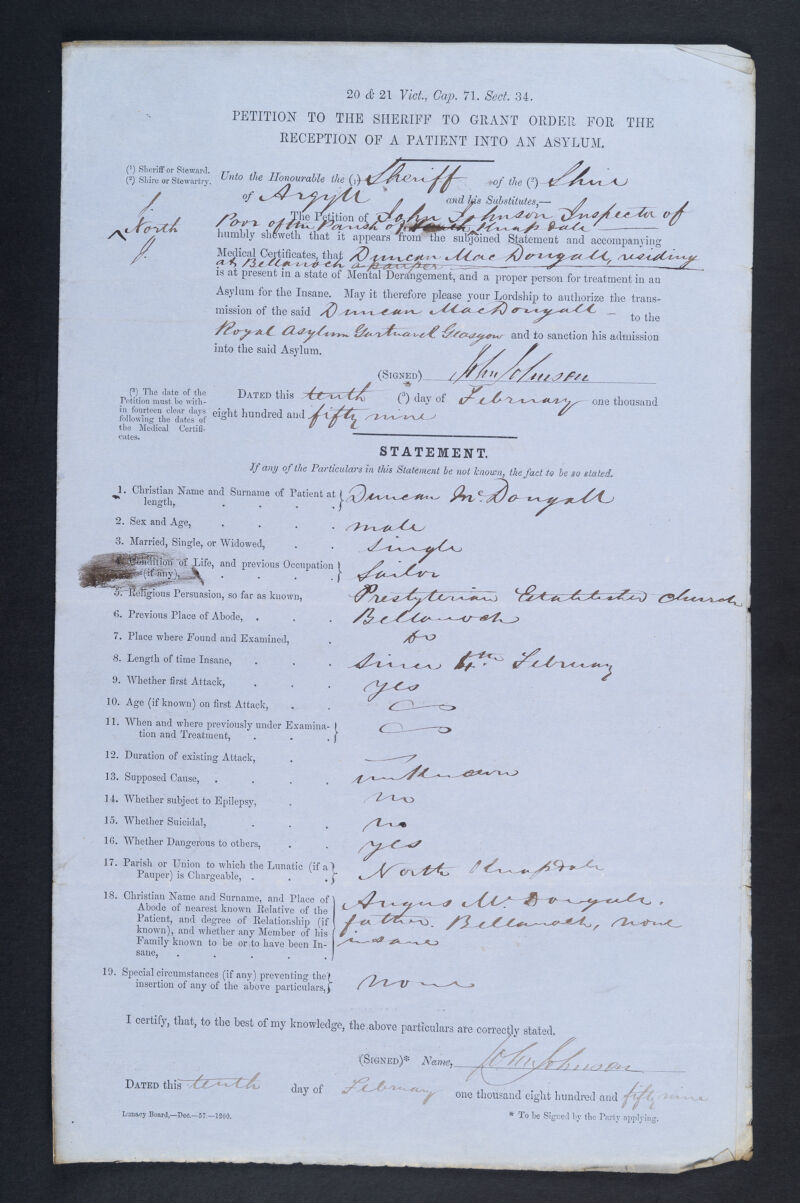 20 & 21 Vict., Cap. 71. Sect. 34.
PETITION TO THE SHERIFF TO GRANT ORDER FOR THE
RECEPTION OF A PATIENT INTO AN ASYLUM.
(¹) Sheriff or Steward.
(²) Shire or Stewartry.
Unto the Honourable the (¹) Sheriff of the (²) Shire
of Argyll and his Substitutes,—
The Petition of John Johnson Inspector of
North
J.
Poor of the Parish of South Knapdale
humbly sheweth that it appears from the subjoined Statement and accompanying
Medical Certificates, that Duncan MacDougall, residing
at Bellanoch a pauper
is at present in a state of Mental Derangement, and a proper person for treatment in an
Asylum for the Insane. May it therefore please your Lordship to authorize the trans-
mission of the said Duncan MacDougall – to the
Royal Asylum Gartnavel Glasgow and to sanction his admission
into the said Asylum.
(SIGNED) John Johnson
(³) The date of the
Petition must be with-
in fourteen clear days
following the dates of
the Medical Certifi-
cates.
DATED this tenth (³) day of February one thousand
eight hundred and fifty nine
STATEMENT.
If any of the Particulars in this Statement be not known, the fact to be so stated.
1. Christian Name and Surname of Patient at
length, Duncan McDougall
2. Sex and Age, male
3. Married, Single, or Widowed, Single
4. Condition of Life, and previous Occupation
(if any), Sailor
5. Religious Persuasion, so far as known, Presbyterian Established Church
6. Previous Place of Abode, Bellanoch
7. Place where Found and Examined, Do
8. Length of time Insane, Since 4th February
9. Whether first Attack, yes
10. Age (if known) on first Attack,
11. When and where previously under Examina-
tion and Treatment,
12. Duration of existing Attack,
13. Supposed Cause, unknown
14. Whether subject to Epilepsy, no
15. Whether Suicidal, no
16. Whether Dangerous to others, yes
17. Parish or Union to which the Lunatic (if a
Pauper) is Chargeable, North Knapdale
18. Christian Name and Surname, and Place of
Abode of nearest known Relative of the
Patient, and degree of Relationship (if
known), and whether any Member of his
Family known to be or to have been In-
sane,
Angus McDougall.
father. Bellanoch, none
insane
19. Special circumstances (if any) preventing the
insertion of any of the above particulars, none
I certify, that, to the best of my knowledge, the above particulars are correctly stated.
(SIGNED)* Name, John Johnson
DATED this tenth day of February one thousand eight hundred and fifty nine
Lunacy Board,—Dec.—57.—1200.
* To be Signed by the Party applying.